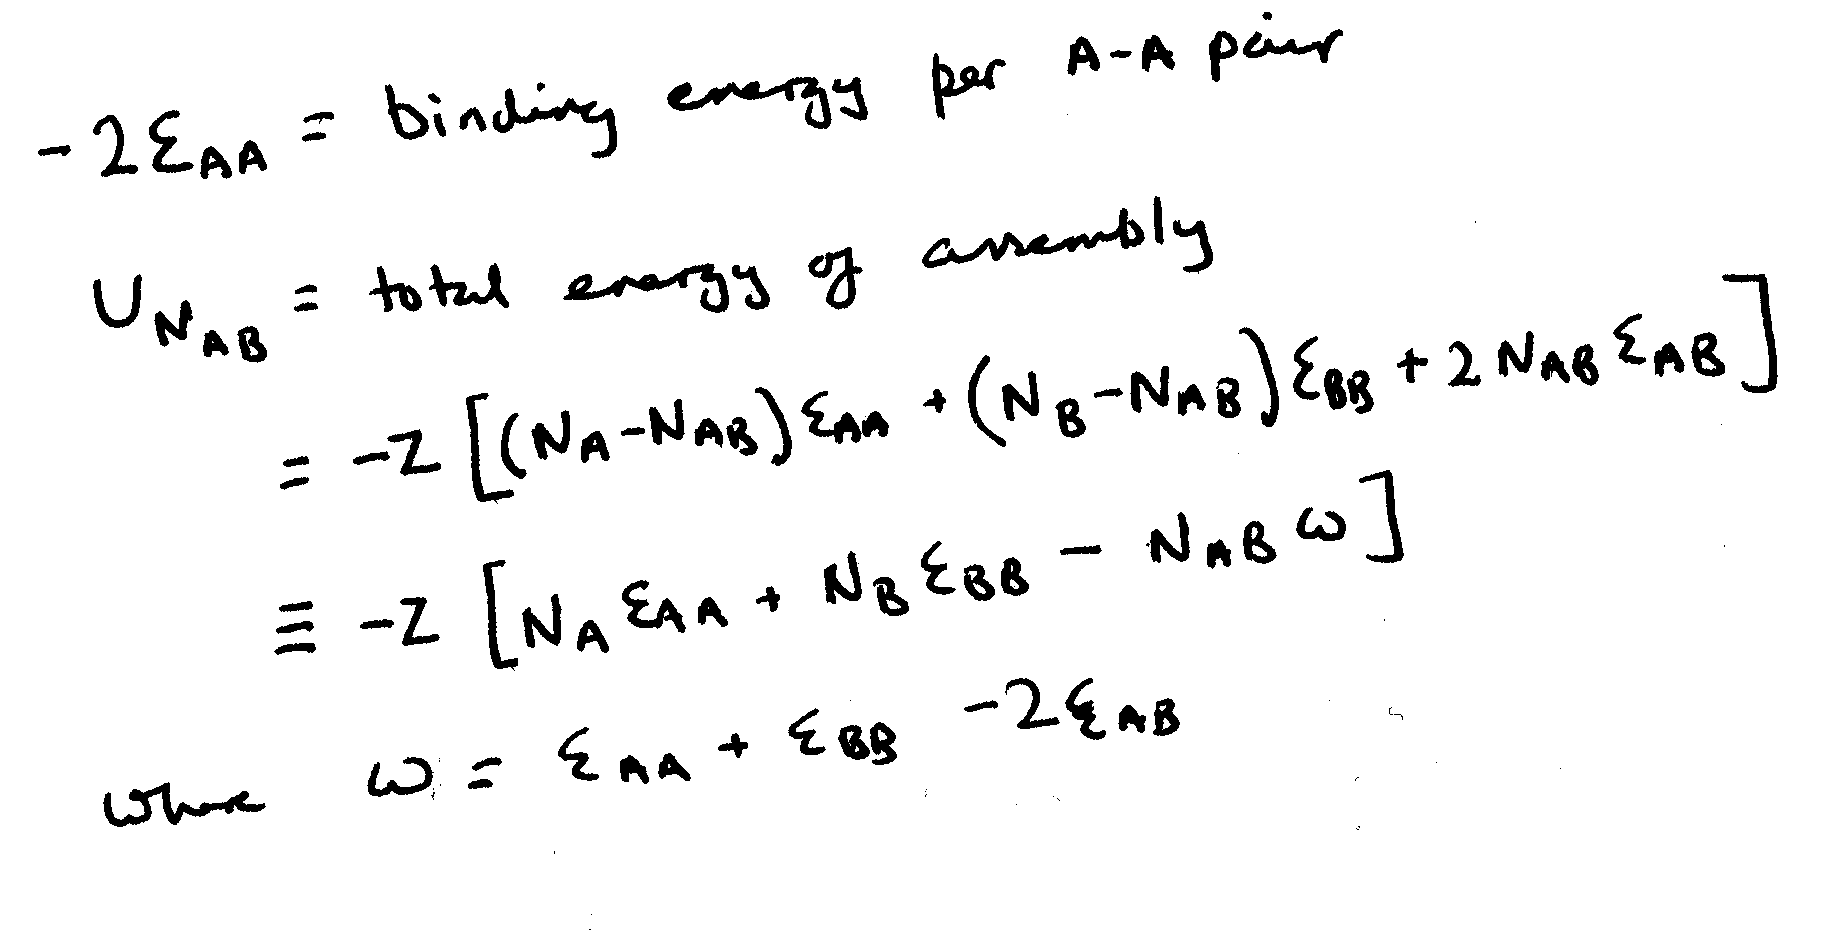 -2ε_AA = binding energy per A-A pair
U_N_AB = total energy of assembly
= -z [(N_A-N_AB) ε_AA + (N_B-N_AB) ε_BB + 2 N_AB ε_AB]
≡ -z [N_A ε_AA + N_B ε_BB - N_AB ω]
where ω = ε_AA + ε_BB -2ε_AB